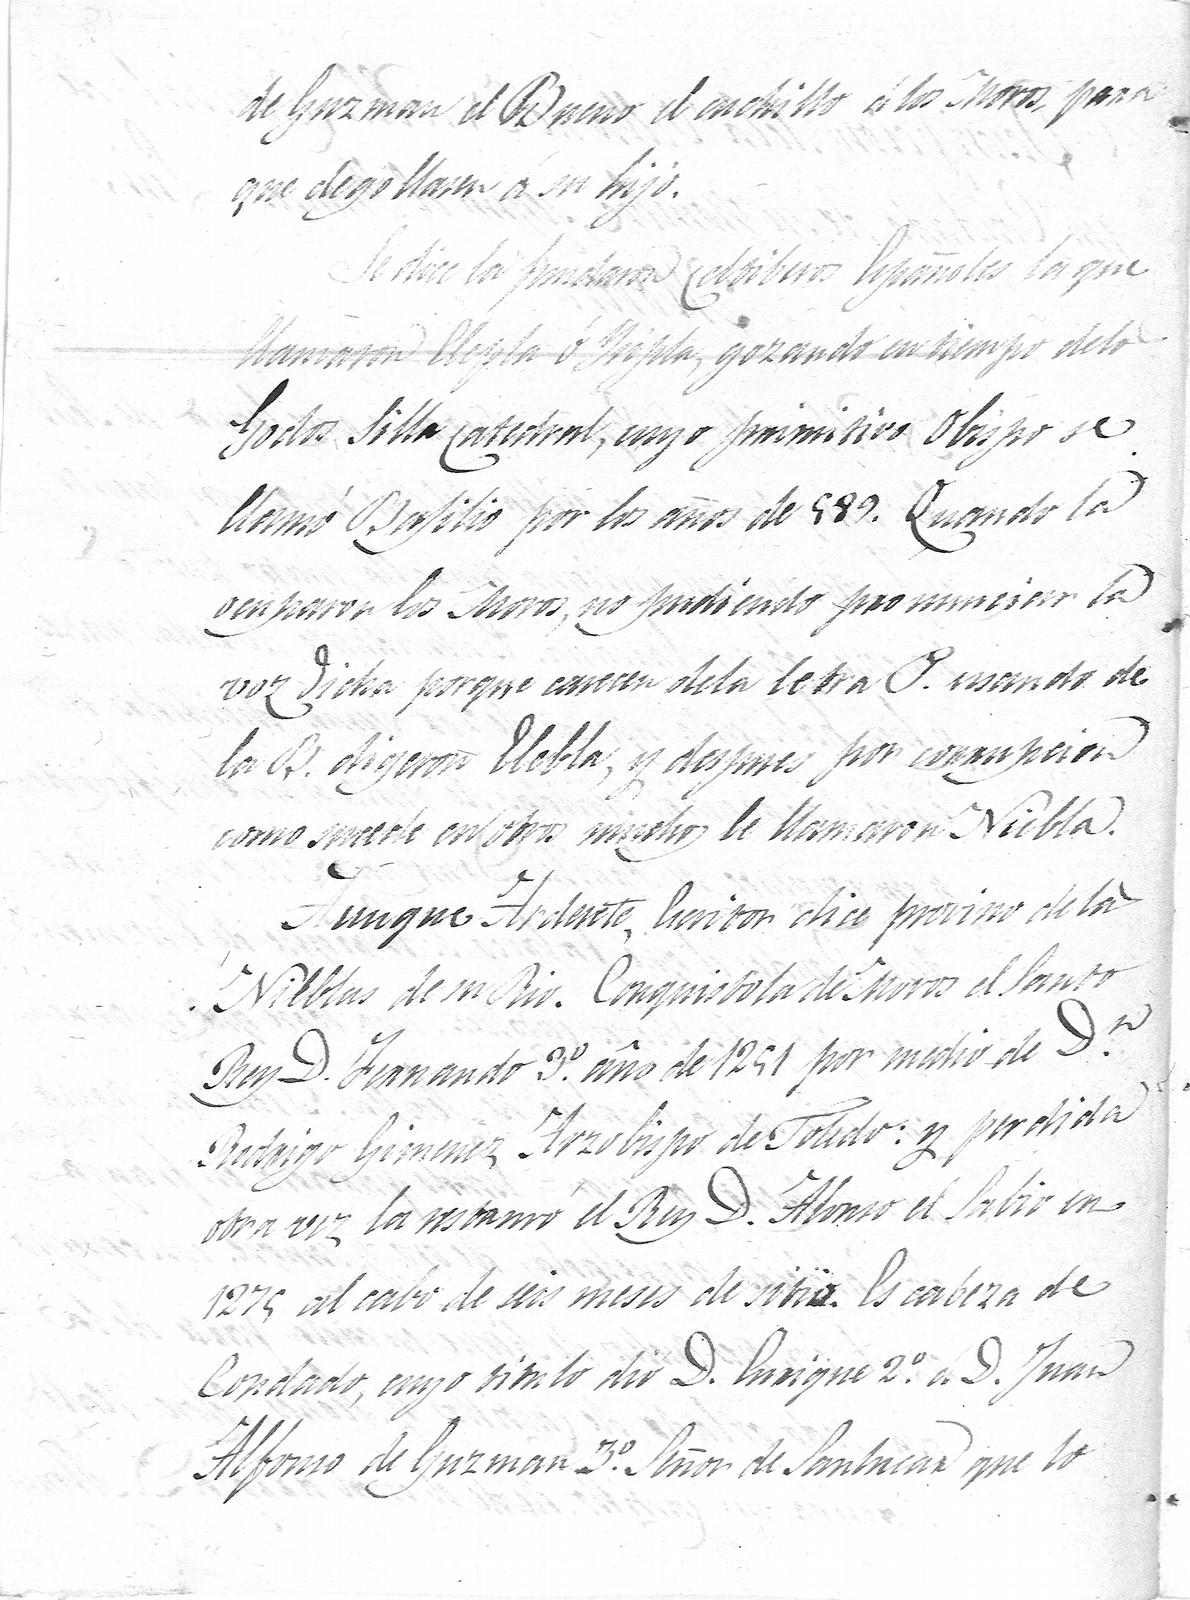 de Guzman el Bueno el cuchillo á los Moros, para
que degollasen á su hijo.
Se dice la fundaron Celtiberos Españoles la que
llamaron Elepla ó Ylipla, gozando en tiempo delo
Godos Silla Catedral, cuyo primitivo Obispo se
llamó Basilio por los años de 589. Quando la
ocuparon los Moros, no pudiendo pronunciar la
voz Dicha porque carecen dela letra P. usando de
la B. digeron Elebla, y despues por corrupcion
como sucede en otros muchos le llamaron Niebla.
Aunque Alderete, Escritor dice provino de la
Nieblas de su Rio. Conquistola de Moros el Santo
Rey D. Fernando 3º. año de 1251 por medio de D.n
Rodrigo Gimenez, Arzobispo de Toledo: y perdida
otra vez la restauró el Rey D. Alonso el Sabio en
1275 al cabo de seis meses de sitio. Es cabeza de
Condado, cuyo titulo dió D. Enrique 2º. a D. Juan
Alfonso de Guzman 3º. Señor de Sanlucar que lo